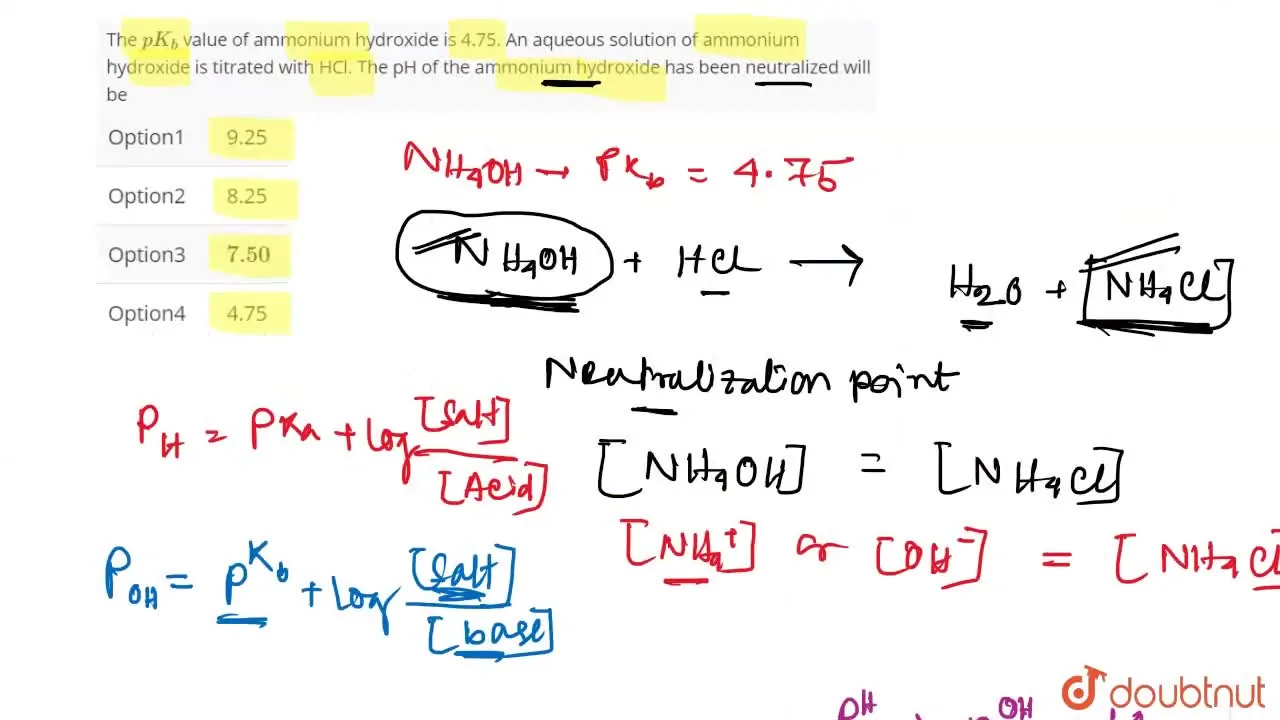 The pK_b value of ammonium hydroxide is 4.75. An aqueous solution of ammonium
hydroxide is titrated with HCl. The pH of the ammonium hydroxide has been neutralized will
be
Option1 9.25
Option2 8.25
Option3 7.50
Option4 4.75
NH4OH → PKb = 4.75
NH4OH + HCl → H2O + NH4Cl
Neutralization point
PH = PKa + log [Salt]/[Acid]
[NH4OH] = [NH4Cl]
[NH4+] or [OH-] = [NH4Cl
POH = PKb + log [Salt]/[base]
PH + POH
doubtnut